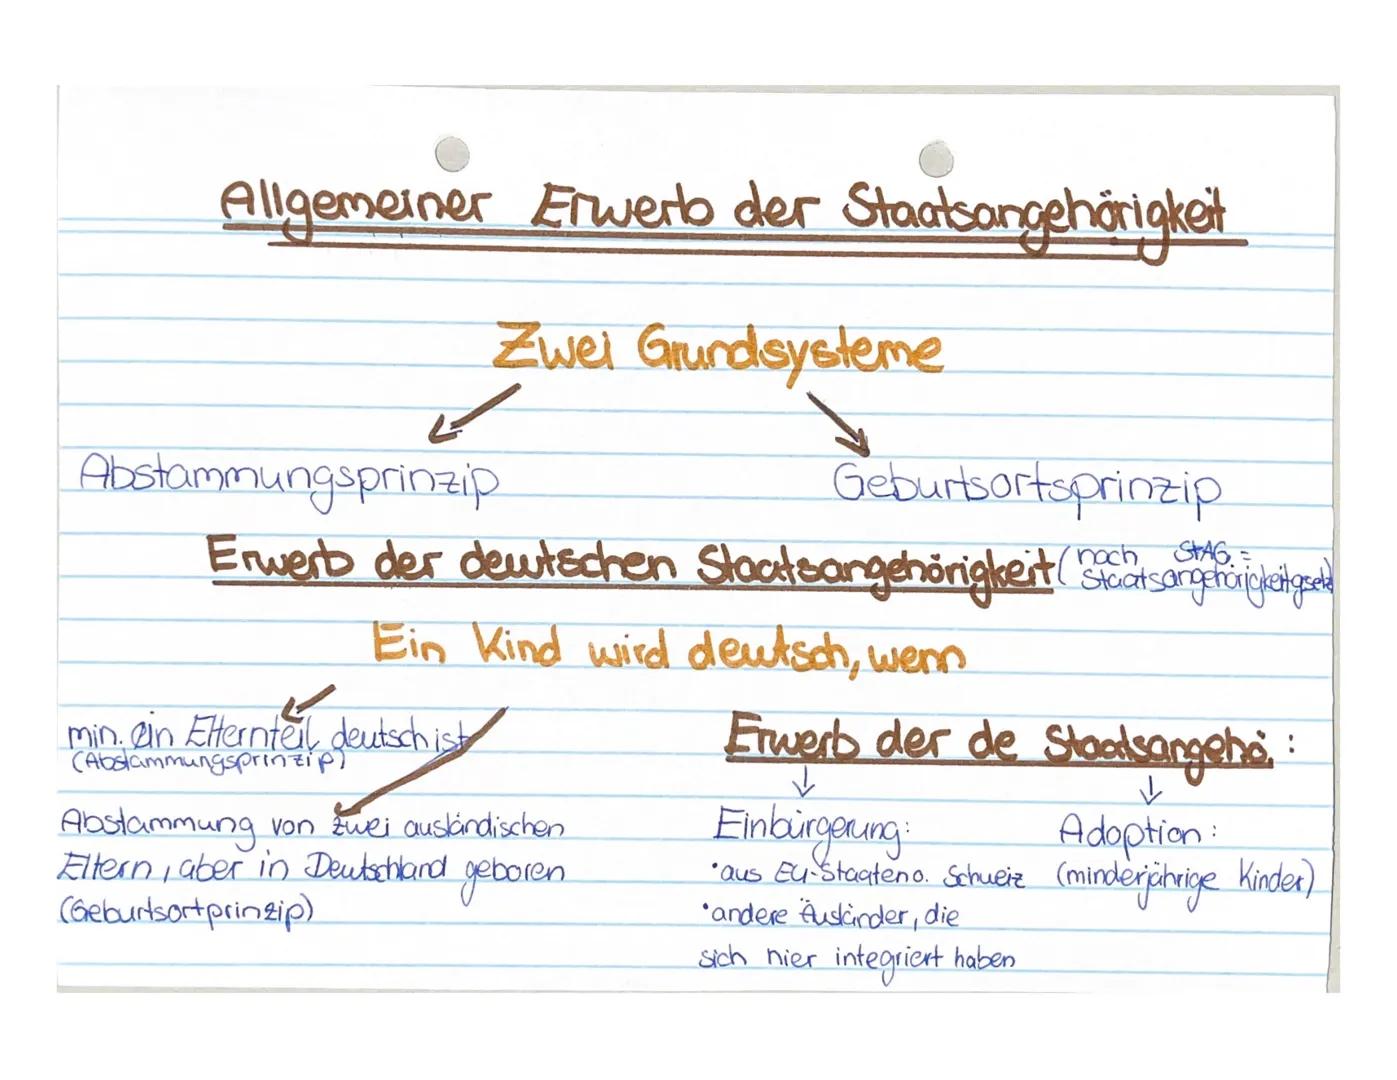 Allgemeiner Erwerb der Staatsangehörigkeit
Zwei Grundsysteme
Abstammungsprinzip
Geburtsortsprinzip
Erwerb der deutschen Staatsangehörigkeit (nach StAG =
Staatsangehörigkeitgsetz)
Ein Kind wird deutsch, wenn
min. ein Elternteil deutsch ist
(Abstammungsprinzip)
Abstammung von zwei ausländischen
Eltern, aber in Deutschland geboren
(Geburtsortprinzip)
Erwerb der de Staatsangehö. :
Einbürgerung:
•aus EU-Staaten o. Schweiz
•andere Ausländer, die
sich hier integriert haben
Adoption:
(minderjährige Kinder)